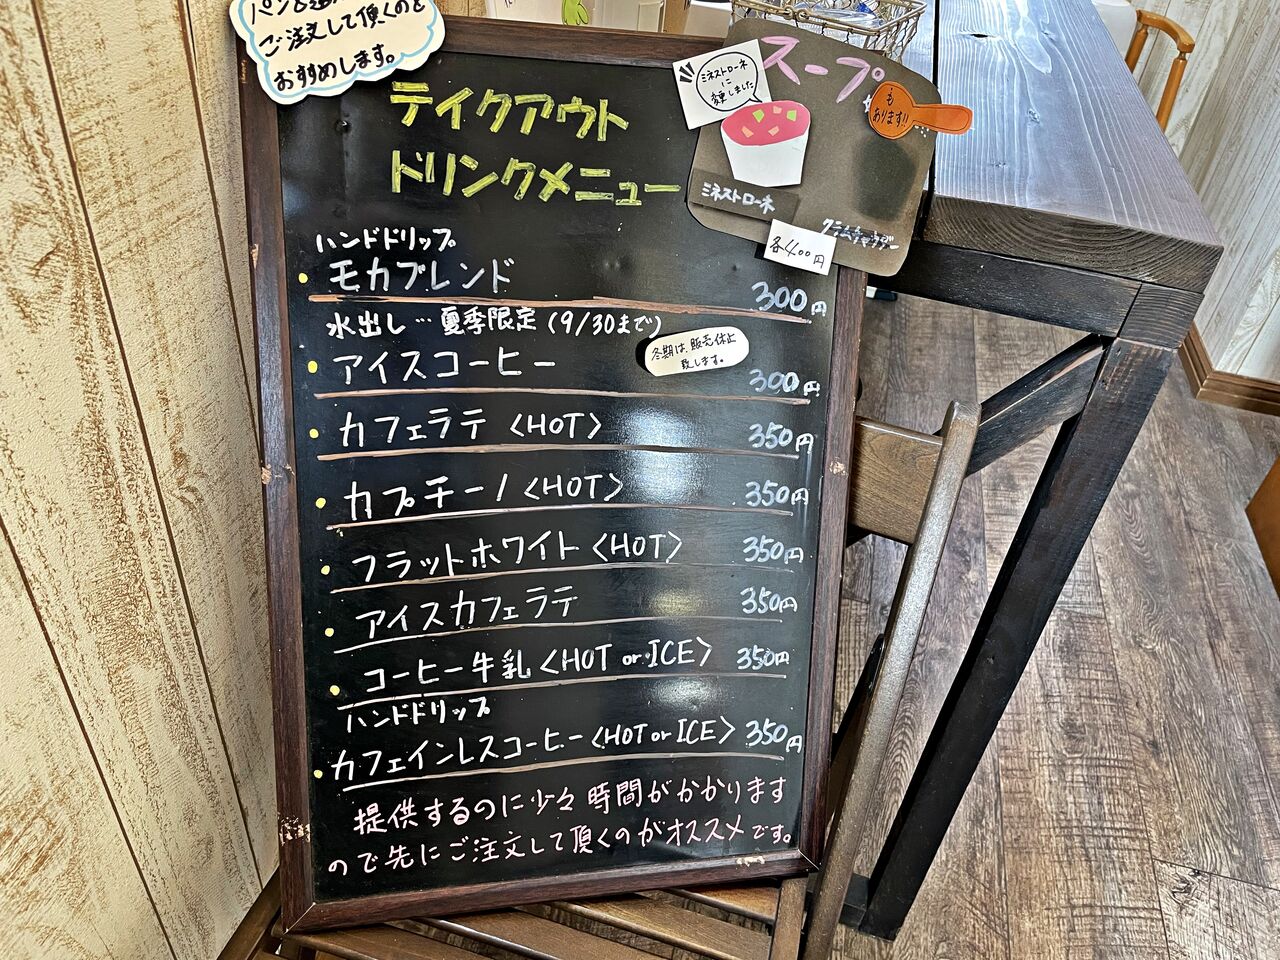 ご注文して頂くのを
おすすめします。
テイクアウト
ドリンクメニュー
スープ
も
あります!!
ミネストローネ
に
変更しました
ミネストローネ
クラムチャウダー
各400円
ハンドドリップ
モカブレンド 300円
水出し…夏季限定(9/30まで)
アイスコーヒー 300円
冬期は、販売休止
致します。
カフェラテ〈HOT〉 350円
カプチーノ〈HOT〉 350円
フラットホワイト〈HOT〉 350円
アイスカフェラテ 350円
コーヒー牛乳〈HOT or ICE〉 350円
ハンドドリップ
カフェインレスコーヒー〈HOT or ICE〉 350円
提供するのに少々時間がかかります
ので先にご注文して頂くのがオススメです。